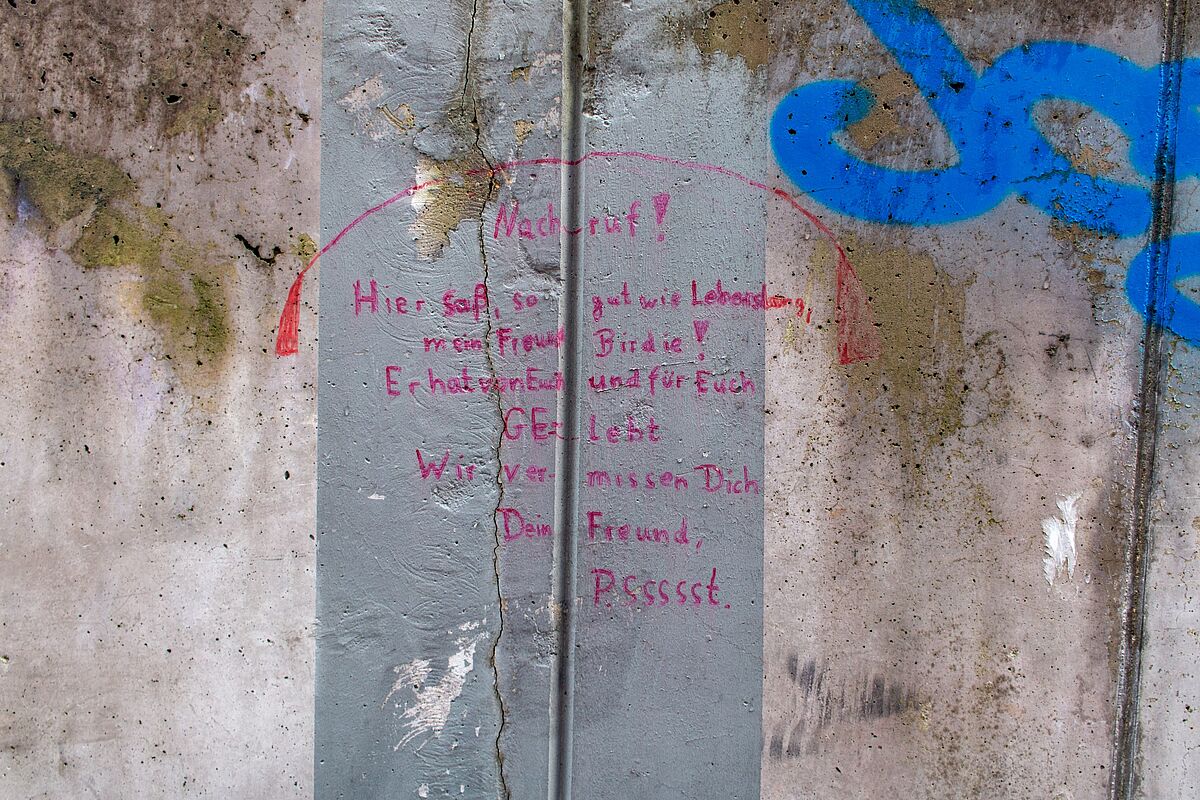 Nachruf!
Hier saß, so gut wie Lebenslang,
mein Freund Birdie!
Er hat von Euch und für Euch
GE-lebt
Wir ver-missen Dich
Dein Freund,
P.Ssssst.